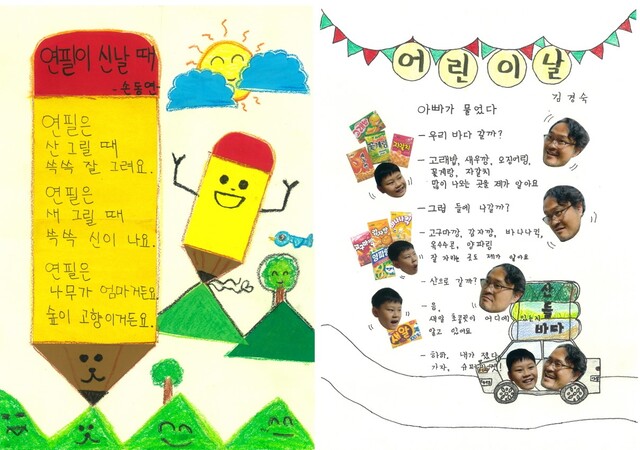 연필이 신날 때
- 손동연
연필은
산 그릴 때
쓱쓱 잘 그려요.
연필은
새 그릴 때
쓱쓱 신이 나요.
연필은
나무가 엄마거든요.
숲이 고향이거든요.
어린이날
김경숙
아빠가 물었다
- 우리 바다 갈까?
- 고래밥, 새우깡, 오징어집,
꽃게랑, 자갈치
많이 나오는 곳을 제가 알아요
- 그럼 들에 나갈까?
- 고구마깡, 감자깡, 바나나킥,
옥수수콘, 양파링
잘 자라는 곳도 제가 알아요
- 산으로 갈까?
- 음,
새알 초콜릿이 어디에 있는지
알고 있어요
- 하하, 내가 졌다
가자, 슈퍼
산
들
바다
자갈치
고구마깡
감자깡
바나나킥
양파링
새알